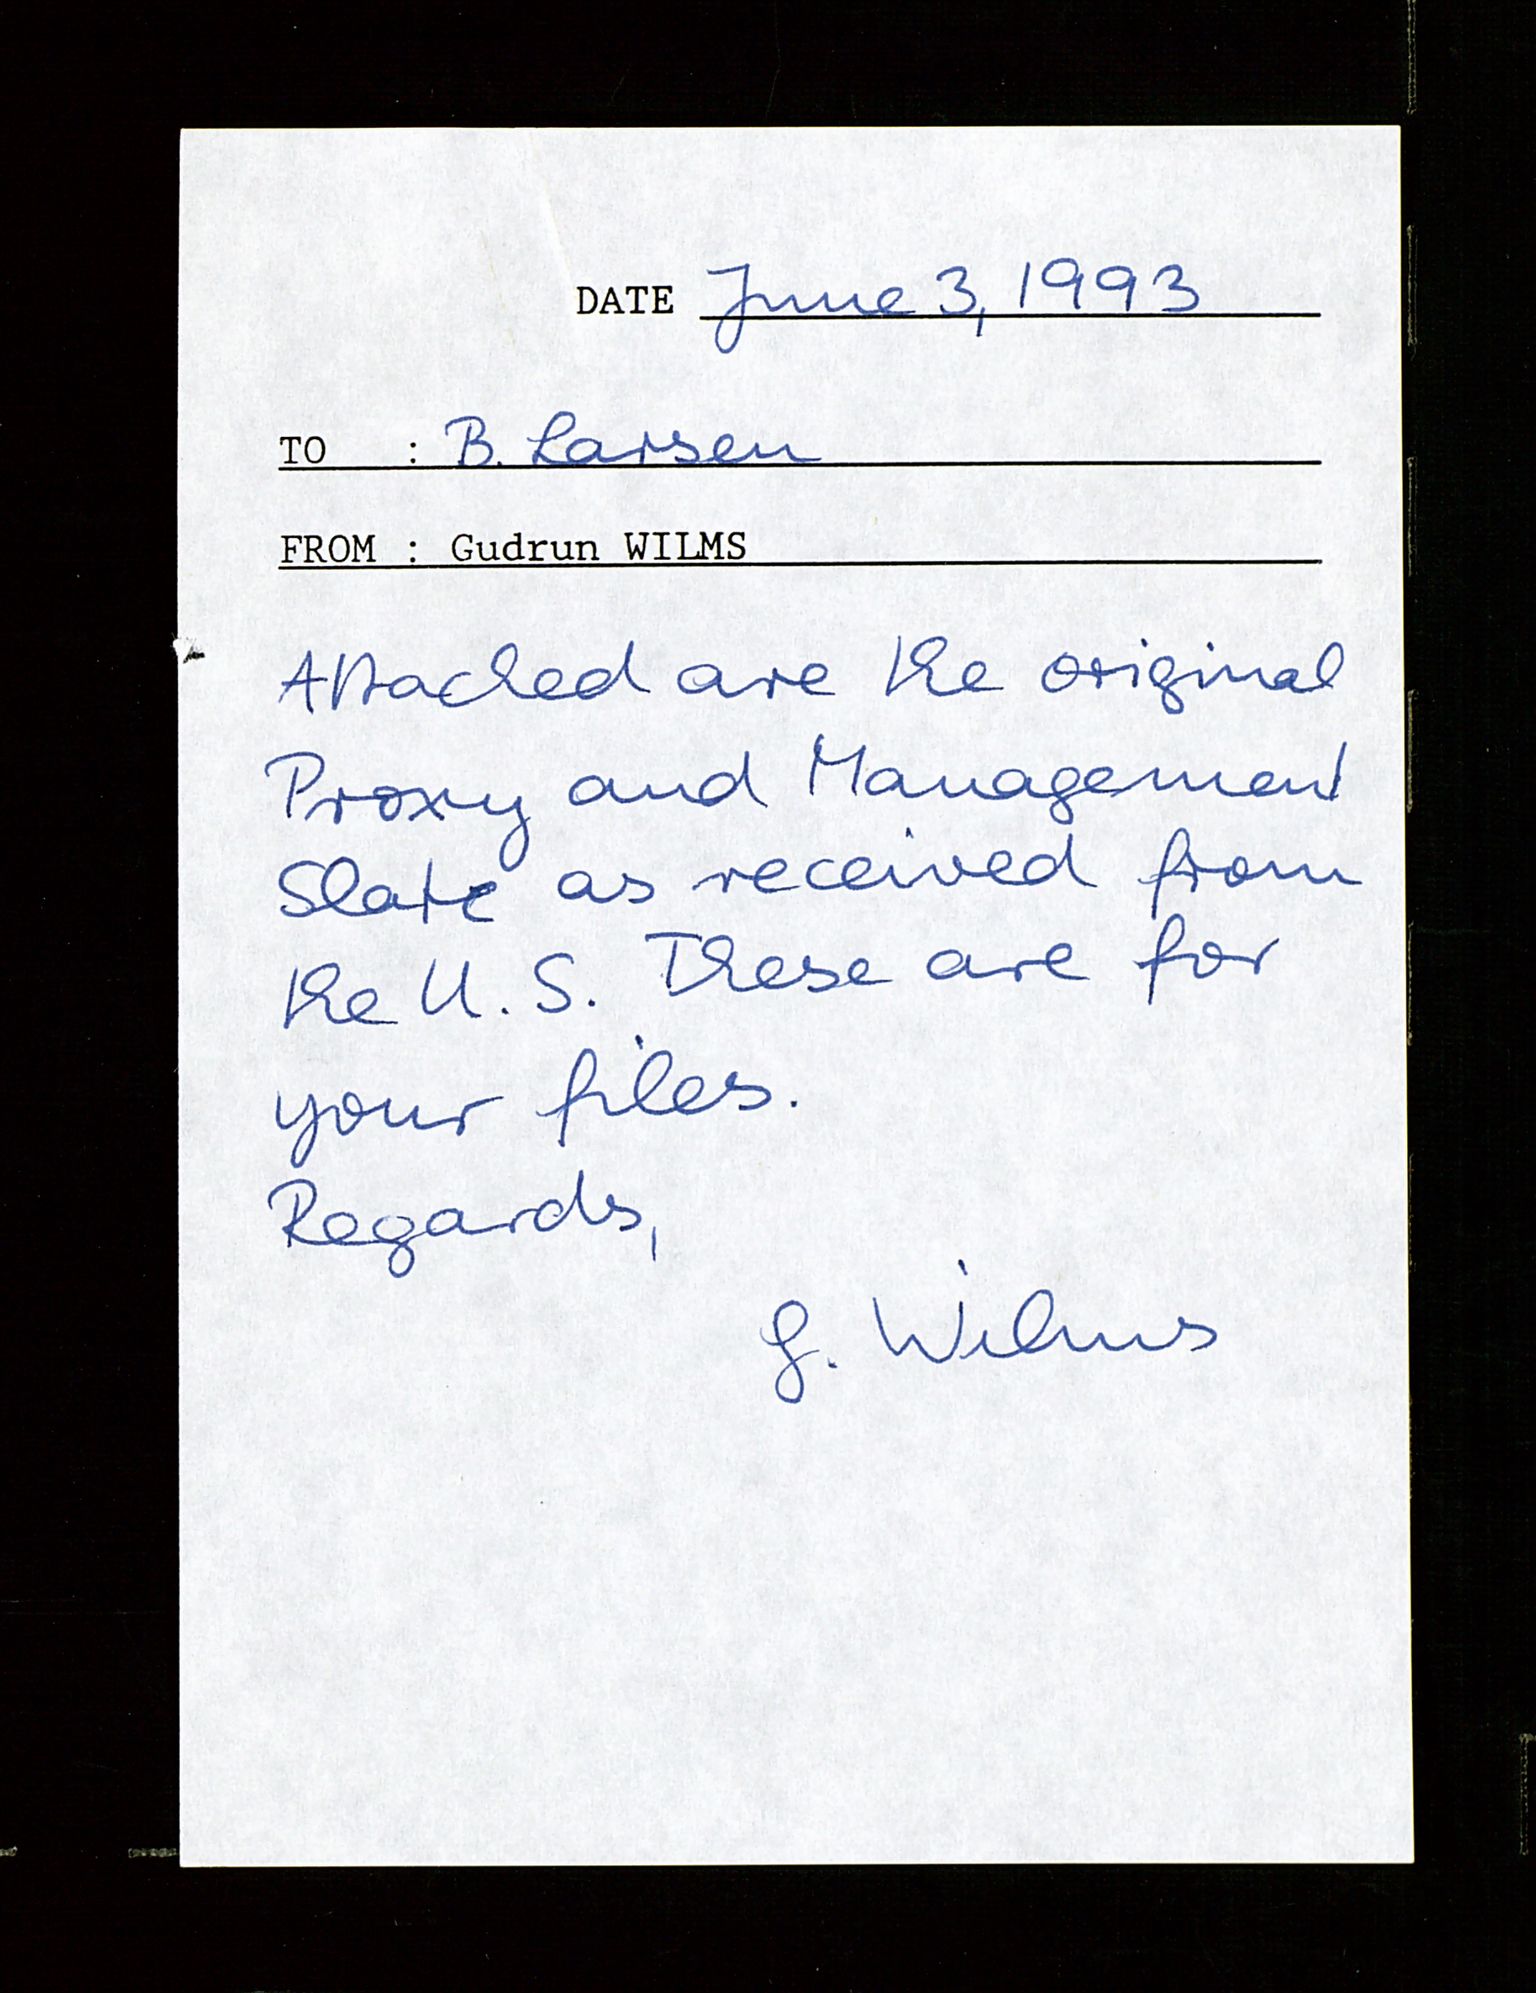 DATE June 3, 1993
TO : B. Larsen
FROM : Gudrun WILMS
Attached are the original
Proxy and Management
Slate as received from
the U.S. These are for
your files.
Regards,
G. Wilms